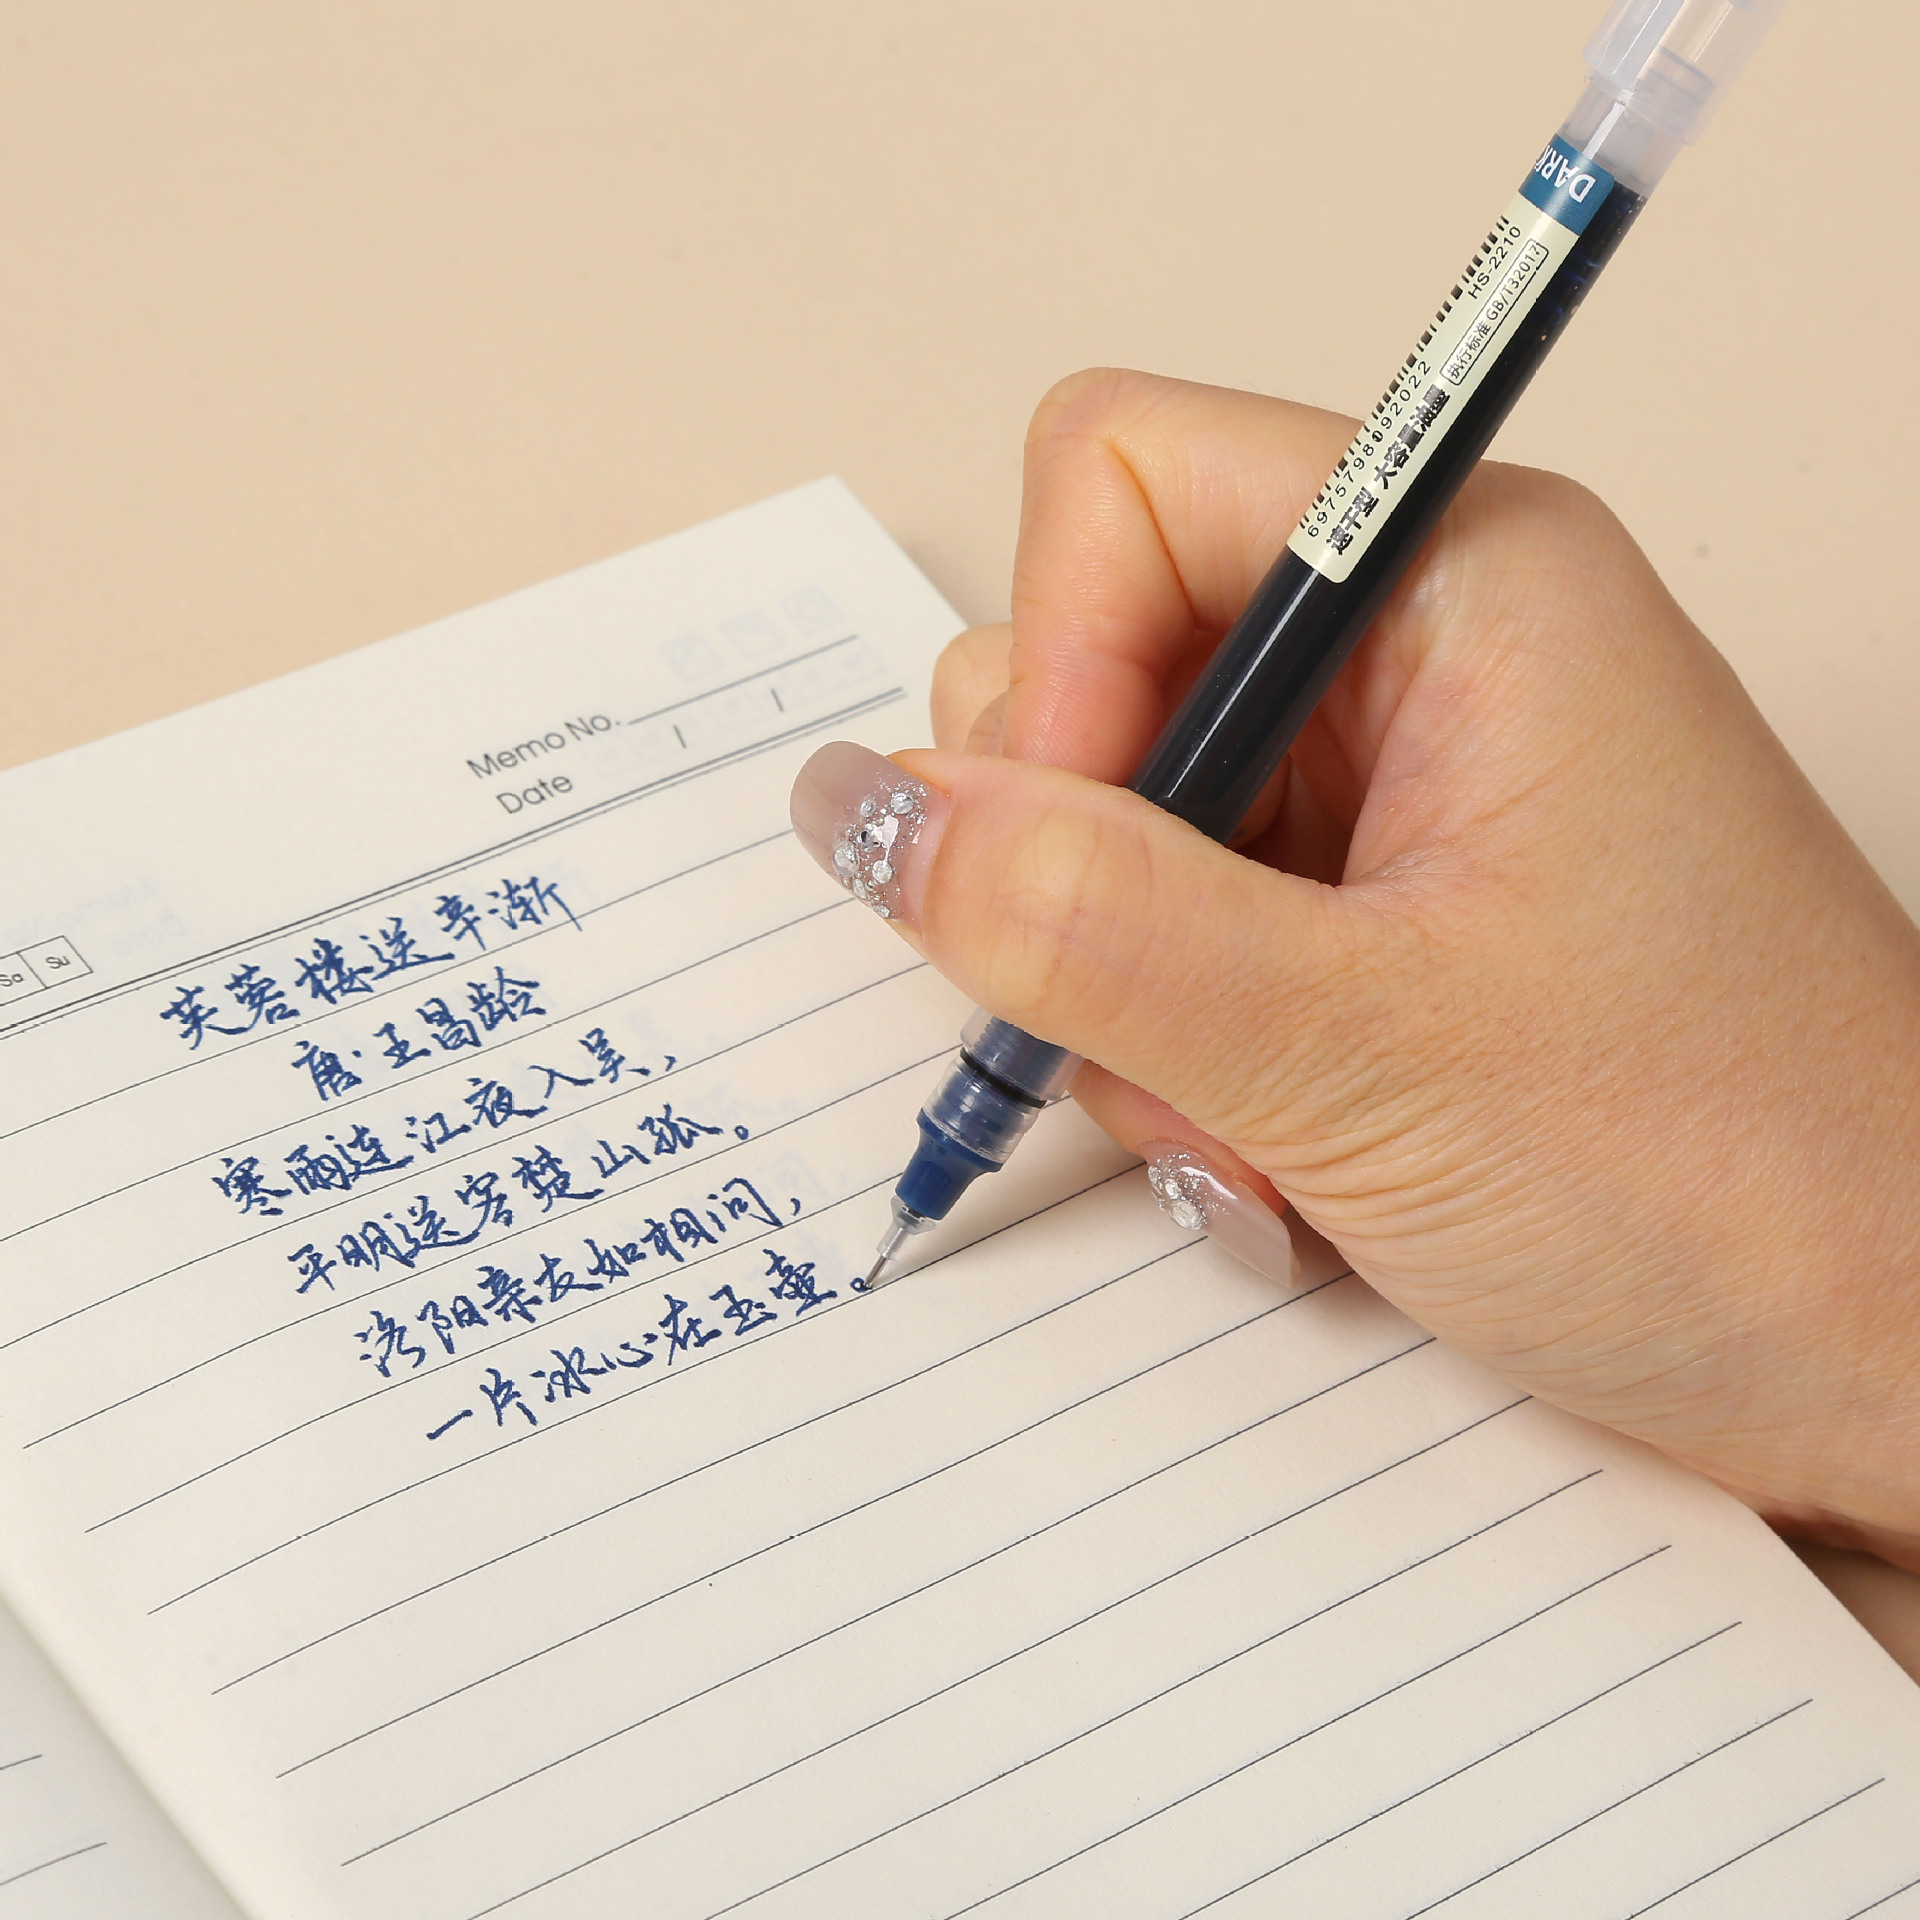 DARK
HS-2210
执行标准 GB/T32017
6975798092022
速干型 大容量油墨
Memo No.
Date
Sa Su
芙蓉楼送辛渐
唐·王昌龄
寒雨连江夜入吴，
平明送客楚山孤。
洛阳亲友如相问，
一片冰心在玉壶。